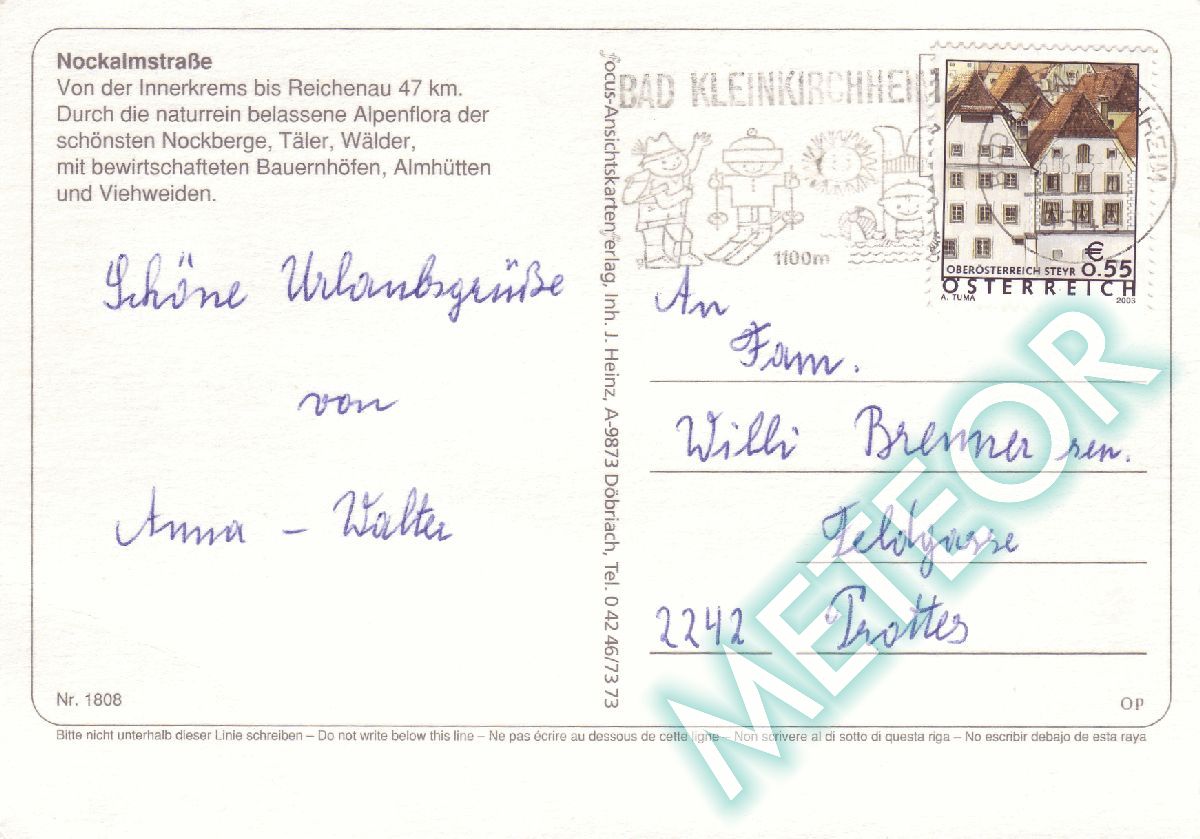 Nockalmstraße
Von der Innerkrems bis Reichenau 47 km.
Durch die naturrein belassene Alpenflora der
schönsten Nockberge, Täler, Wälder,
mit bewirtschafteten Bauernhöfen, Almhütten
und Viehweiden.
Schöne Urlaubsgrüße
von
Anna – Walter
Nr. 1808
focus-Ansichtskarten-Verlag, Inh. J. Heinz, A-9873 Döbriach, Tel. 0 42 46/73 73
BAD KLEINKIRCHHEIM
1100m
OBERÖSTERREICH STEYR
€ 0.55
ÖSTERREICH
A. TUMA
2003
An
Fam.
Willi Brenner sen.
Feldgasse
2242 Prottes
METEOR
OP
Bitte nicht unterhalb dieser Linie schreiben – Do not write below this line – Ne pas écrire au dessous de cette ligne – Non scrivere al di sotto di questa riga – No escribir debajo de esta raya